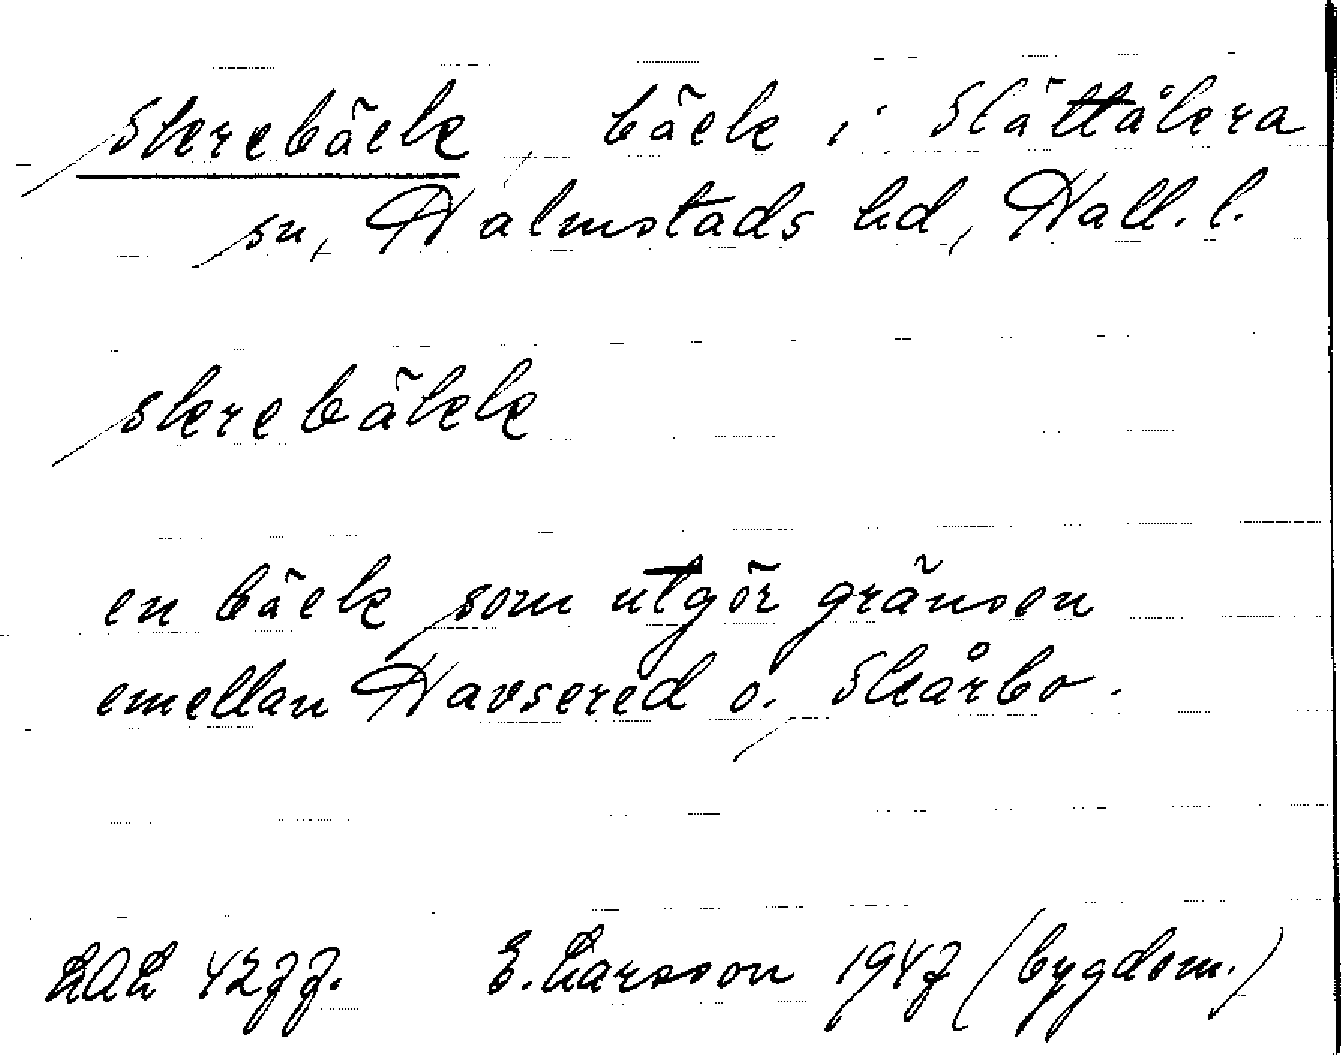 Skrebäck, bäck i Slättåkra
sn, Halmstads hd, Hall. l.
skrebäkk
en bäck som utgör gränsen
emellan Havsered o. Skårbo.
LAL 4277. E. Larsson 1947 (bygdem.)